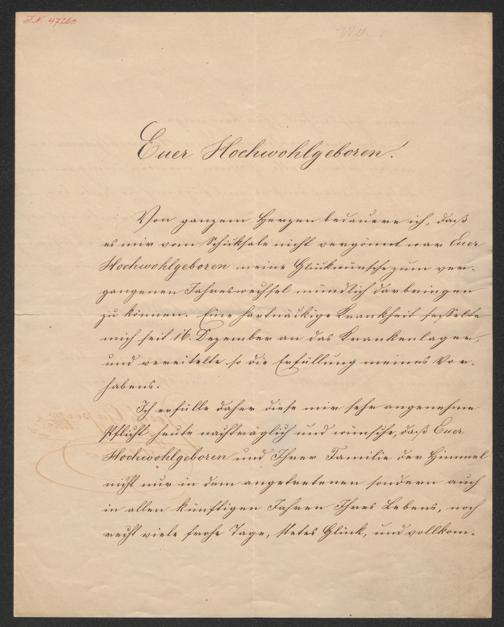 I.N. 47260
Euer Hochwohlgeboren!
Von ganzem Herzen bedauere ich, daß
es mir vom Schiksale nicht vergönnt war Euer
Hochwohlgeboren meine Glükwünsche zum ver-
gangenen Jahreswechsel mündlich darbringen
zu können. Eine hartnäkige Krankheit fesselte
mich seit 16. Dezember an das Krankenlager,
und vereitelte so die Erfüllung meines Vor-
habens.
Ich erfülle daher diese mir sehr angenehme
Pflicht heute nachträglich und wünsche, daß Euer
Hochwohlgeboren und Ihrer Familie der Himmel
nicht nur in dem angetretenen sondern auch
in allen künftigen Jahren Ihres Lebens, noch
recht viele frohe Tage, stetes Glück, und vollkom-